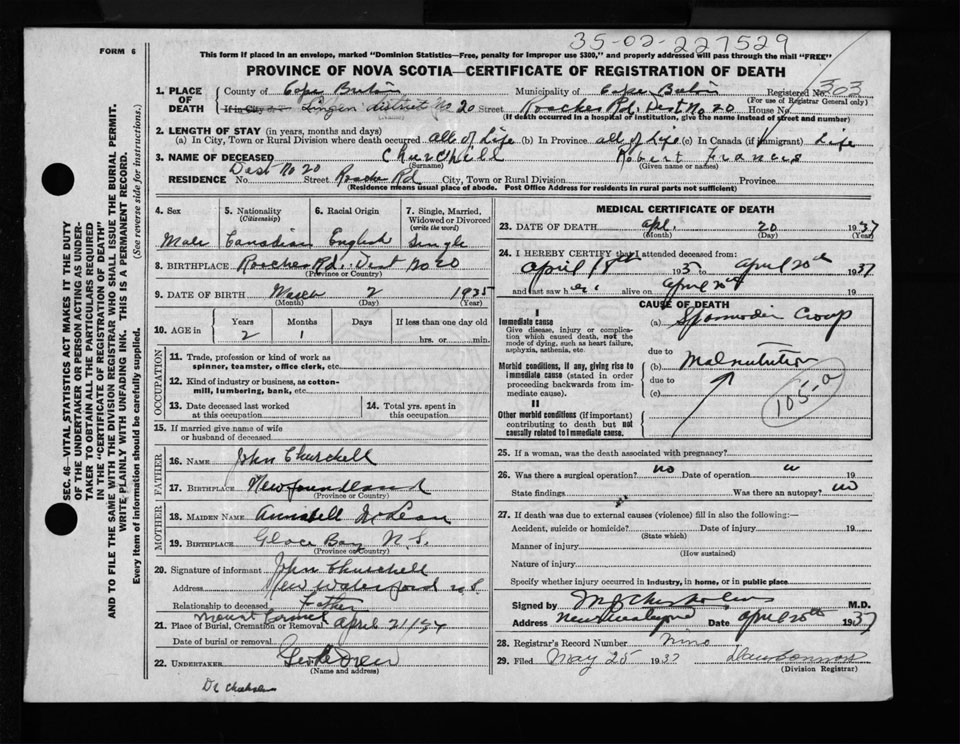 35-02-227529
FORM 6
This form if placed in an envelope, marked "Dominion Statistics—Free, penalty for improper use $300," and properly addressed will pass through the mail "FREE"
PROVINCE OF NOVA SCOTIA—CERTIFICATE OF REGISTRATION OF DEATH
SEC. 46—VITAL STATISTICS ACT MAKES IT THE DUTY
OF THE UNDERTAKER OR PERSON ACTING AS UNDER-
TAKER TO OBTAIN ALL THE PARTICULARS REQUIRED
IN THE "CERTIFICATE OF REGISTRATION OF DEATH"
AND TO FILE THE SAME WITH THE DIVISION REGISTRAR WHO SHALL ISSUE THE BURIAL PERMIT.
WRITE PLAINLY WITH UNFADING INK. THIS IS A PERMANENT RECORD.
Every item of information should be carefully supplied. (See reverse side for instructions.)
1. PLACE OF DEATH County of Cape Breton Municipality of Cape Breton Registered No.
(For use of Registrar General only)
If in City or district No 20 Street Roaches Rd. Dist No 20 House No.
(If death occurred in a hospital or institution, give the name instead of street and number)
2. LENGTH OF STAY (in years, months and days)
(a) In City, Town or Rural Division where death occurred all of Life (b) In Province all of Life (c) In Canada (if immigrant) Life
3. NAME OF DECEASED Churchill Robert Francis
(Surname) (Given name or names)
RESIDENCE No. Dist No 20 Street Roaches Rd City, Town or Rural Division Province
(Residence means usual place of abode. Post Office Address for residents in rural parts not sufficient)
4. Sex Male
5. Nationality (Citizenship) Canadian
6. Racial Origin English
7. Single, Married, Widowed or Divorced (write the word) Single
8. BIRTHPLACE Roaches Rd. Dist No 20
(Province or Country)
9. DATE OF BIRTH March 2 1935
(Month) (Day) (Year)
10. AGE in Years Months Days If less than one day old
2 1 hrs. or min.
OCCUPATION
11. Trade, profession or kind of work as spinner, teamster, office clerk, etc.
12. Kind of industry or business, as cotton-mill, lumbering, bank, etc.
13. Date deceased last worked at this occupation
14. Total yrs. spent in this occupation
15. If married give name of wife or husband of deceased
FATHER
16. NAME John Churchill
17. BIRTHPLACE Newfoundland
(Province or Country)
MOTHER
18. MAIDEN NAME Annabell McLean
19. BIRTHPLACE Glace Bay N.S.
(Province or Country)
20. Signature of informant John Churchill
Address New Waterford N.S.
Relationship to deceased Father
21. Place of Burial, Cremation or Removal Mount Carmel April 21/37
Date of burial or removal
22. UNDERTAKER
(Name and address)
MEDICAL CERTIFICATE OF DEATH
23. DATE OF DEATH Apl. 20 1937
(Month) (Day) (Year)
24. I HEREBY CERTIFY that I attended deceased from:
April 18th 193 to April 20th 1937
and last saw h alive on April 20th 19
CAUSE OF DEATH
I
Immediate cause
Give disease, injury or complication which caused death, not the mode of dying, such as heart failure, asphyxia, asthenia, etc.
(a) Spasmodic Croup
due to
Morbid conditions, if any, giving rise to immediate cause (stated in order proceeding backwards from immediate cause).
(b) Malnutrition
due to
(c)
105-a
II
Other morbid conditions (if important) contributing to death but not causally related to immediate cause.
25. If a woman, was the death associated with pregnancy?
26. Was there a surgical operation? no Date of operation 19
State findings Was there an autopsy? no
27. If death was due to external causes (violence) fill in also the following:—
Accident, suicide or homicide? Date of injury 19
(State which)
Manner of injury
(How sustained)
Nature of injury
Specify whether injury occurred in industry, in home, or in public place
Signed by M.D.
Address Date April 20th 1937
28. Registrar's Record Number Nine
29. Filed May 25 1937
(Division Registrar)